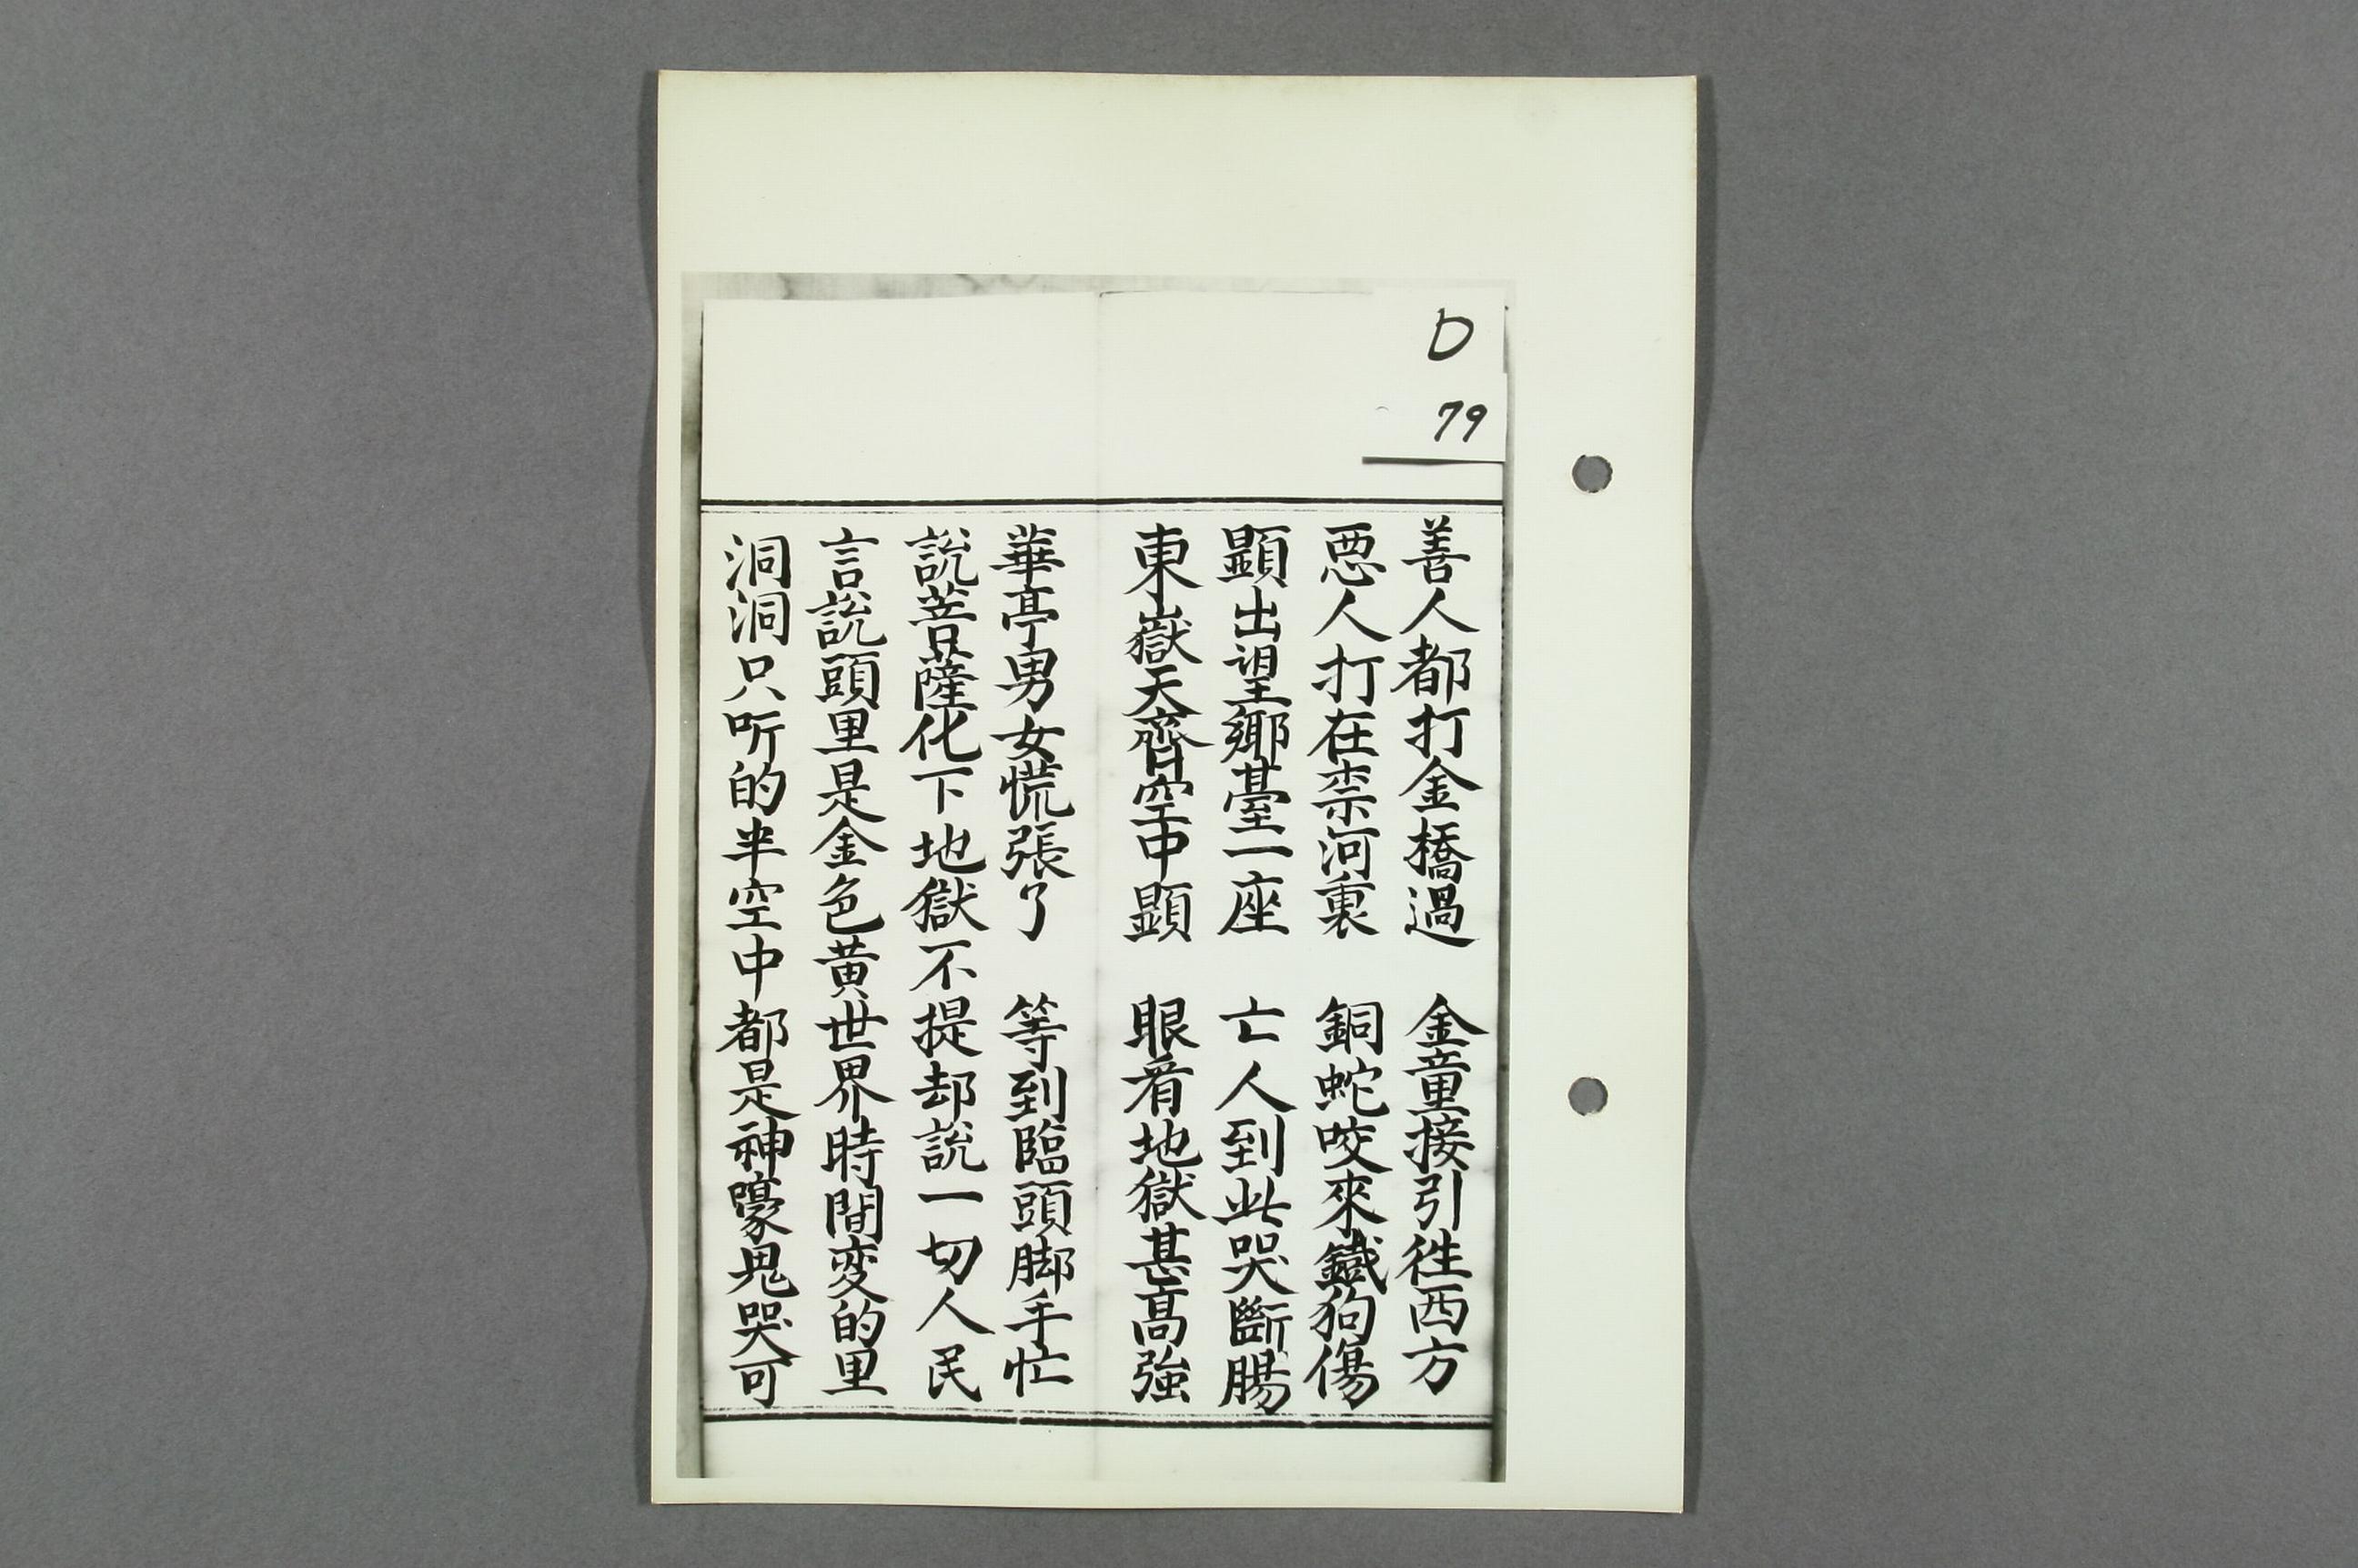 D
79
善人都打金橋過　金童接引徃西方
悪人打在柰河裏　銅蛇咬來鐵狗傷
顕出望鄉臺一座　亡人到此哭斷腸
東嶽天齊空中顕　眼看地獄甚高強
華亭男女慌張了　等到臨頭脚手忙
說菩薩化下地獄不提却說一切人民
言說頭里是金色黃世界時間变的里
洞洞只听的半空中都是神嚎鬼哭可